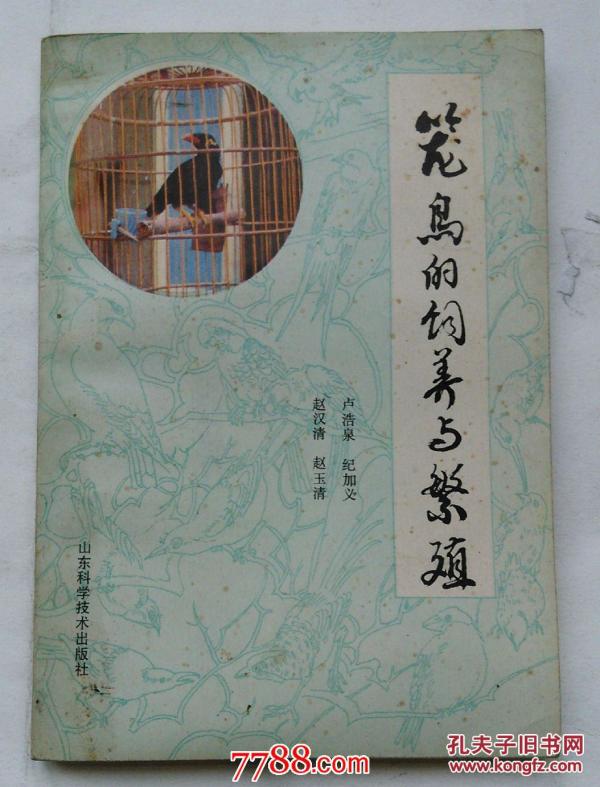 笼鸟的饲养与繁殖
卢浩泉 纪加义
赵汉清 赵玉清
山东科学技术出版社
7788.com
孔夫子旧书网
www.kongfz.com